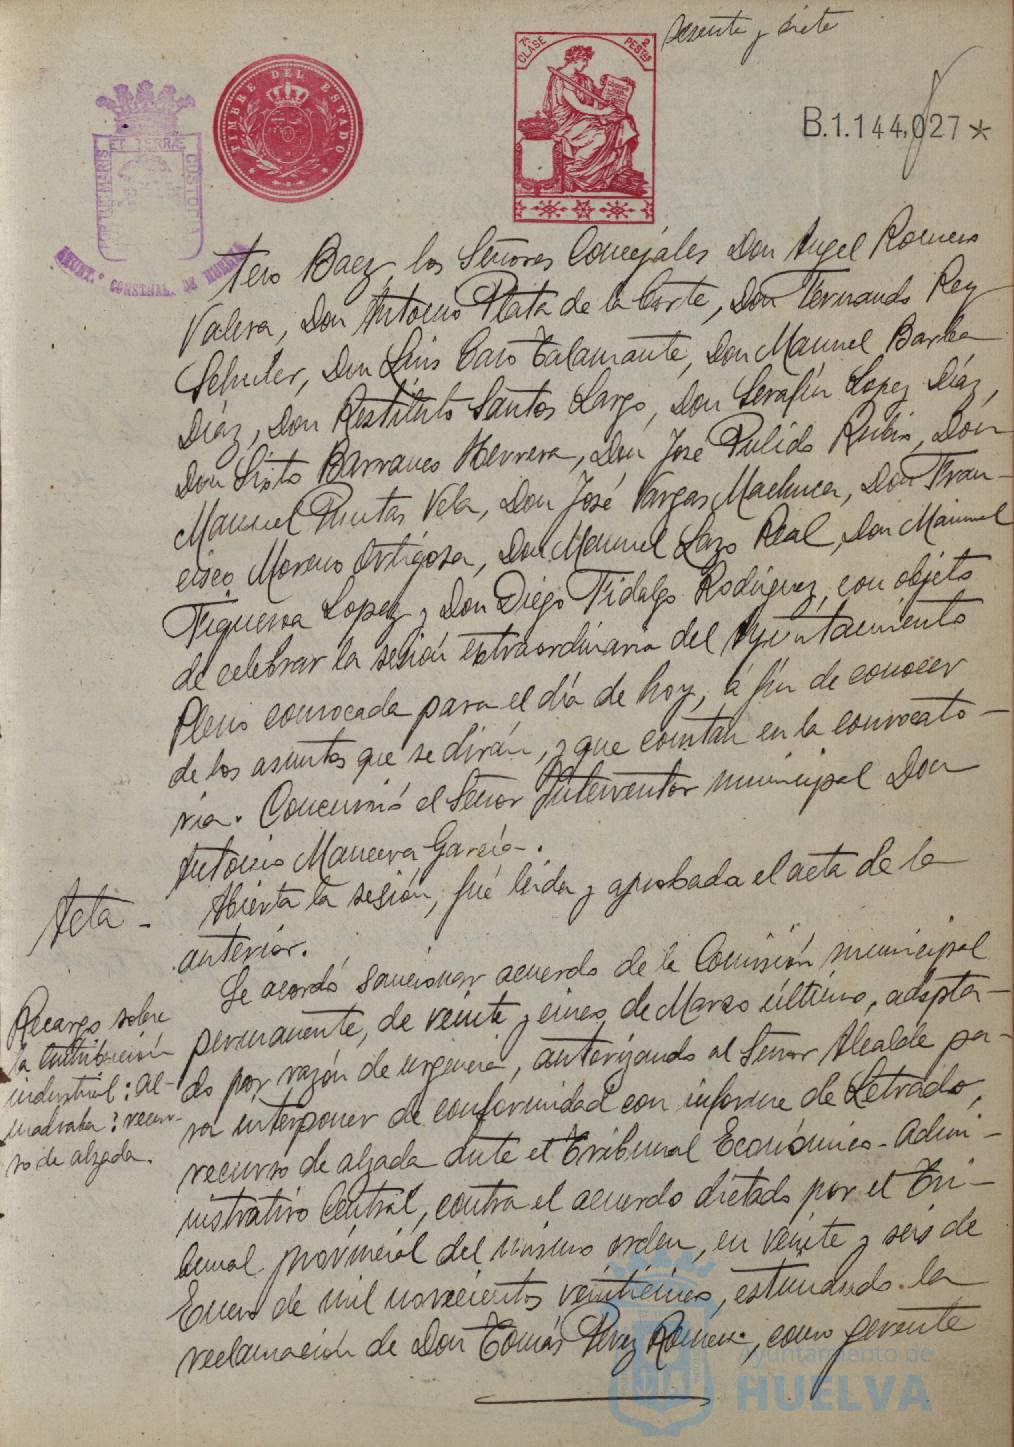 sesenta y siete
7ª CLASE 2 PESTAS
TIMBRE DEL ESTADO
B.1.144,027*
ET TERRÆ
MARIS
CUSTODIA
AYUNT.º CONSTNAL. DE HUELVA
tero Baez, los Señores Concejáles Don Angel Romero
Valera, Don Antonio Plata de la Corte, Don Fernando Rey
Don Luis Caro Talamante, Don Manuel Barba
Díaz, Don Restituto Santos Largo, Don Serafín Lopez Díaz,
Don Sixto Barranco Herrera, Don José Pulido Rubio, Don
Manuel Puntas Vela, Don José Vargas Machuca, Don Fran-
cisco Moreno Ortigosa, Don Manuel Lazo Real, Don Manuel
Figueroa Lopez y Don Diego Fidalgo Rodríguez, con objeto
de celebrar la sesión extraordinaria del Ayuntamiento
Pleno convocada para el día de hoy, á fin de conocer
de los asuntos que se dirán, y que constan en la convocato-
ria. Concurrió el Señor Interventor municipal Don
Antonio Mancera García.
Acta-
Abierta la sesión, fué leida y aprobada el acta de la
anterior.
Recargo sobre
la contribución
industrial: Al-
madraba: recur-
so de alzada.
Se acordó sancionar acuerdo de la Comisión municipal
permanente, de veinte y cinco de Marzo último, adopta-
do por razón de urgencia, autorizando al Señor Alcalde pa-
ra interponer de conformidad con informe de Letrado,
recurso de alzada ante el Tribunal Económico-Admi-
nistrativo Central, contra el acuerdo dictado por el Tri-
bunal provincial del mismo orden, en veinte y seis de
Enero de mil novecientos veinticinco, estimando la
reclamación de Don Tomás Perez Romero, como gerente
Ayuntamiento de
HUELVA